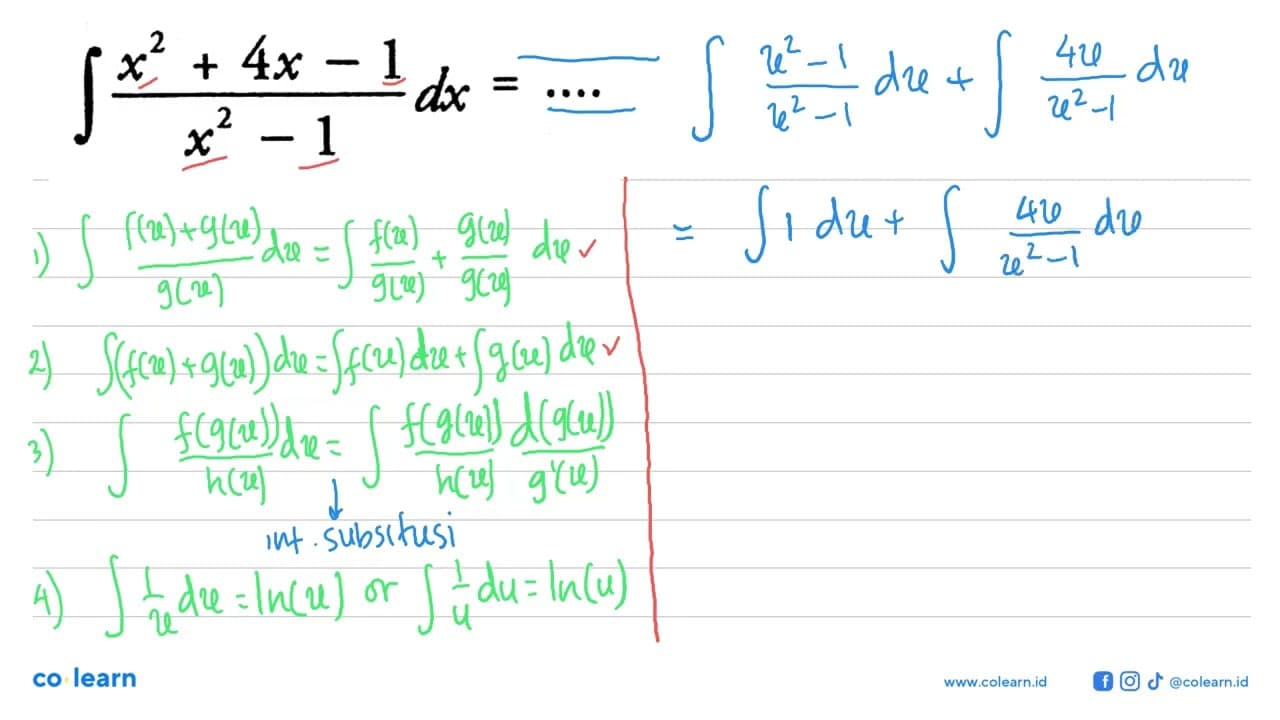 ∫ (x² + 4x − 1)/(x² − 1) dx = ....
∫ (x² − 1)/(x² − 1) dx + ∫ 4x/(x² − 1) dx
= ∫ 1 dx + ∫ 4x/(x² − 1) dx
1) ∫ (f(x) + g(x))/g(x) dx = ∫ f(x)/g(x) + g(x)/g(x) dx ✓
2) ∫(f(x) + g(x)) dx = ∫f(x) dx + ∫g(x) dx ✓
3) ∫ f(g(x))/h(x) dx = ∫ f(g(x))/h(x) d(g(x))/g'(x)
↓
int. substitusi
4) ∫ 1/x dx = ln(x) or ∫ 1/u du = ln(u)
co learn
www.colearn.id
@colearn.id